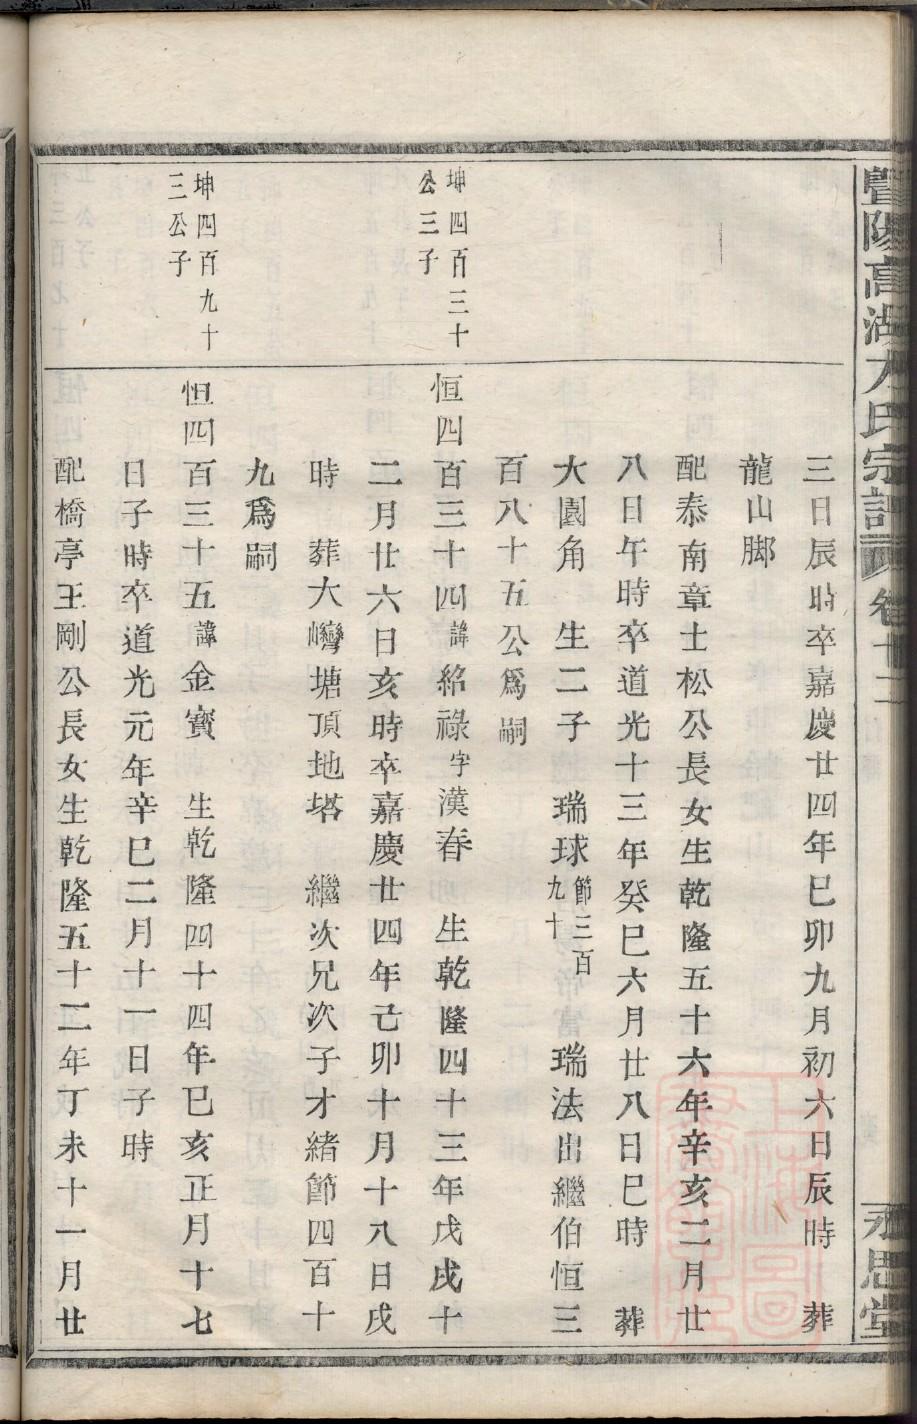 暨陽高湖方氏宗譜 卷十二 永思堂
三日辰時卒嘉慶廿四年巳卯九月初六日辰時 葬
龍山脚
配泰南章士松公長女生乾隆五十六年辛亥二月廿
八日午時卒道光十三年癸巳六月廿八日巳時 葬
大園角 生二子 瑞球節三百九十 瑞法出繼伯恒三
百八十五公爲嗣
坤四百三十
公三子
恒四百三十四諱紹祿字漢春 生乾隆四十三年戊戌十
二月廿六日亥時卒嘉慶廿四年己卯十月十八日戌
時 葬大㘰塘頂地塔 繼次兄次子才緒節四百十
九爲嗣
坤四百九十
三公子
恒四百三十五諱金寳 生乾隆四十四年巳亥正月十七
日子時卒道光元年辛巳二月十一日子時
配橋亭王剛公長女生乾隆五十二年丁未十一月廿